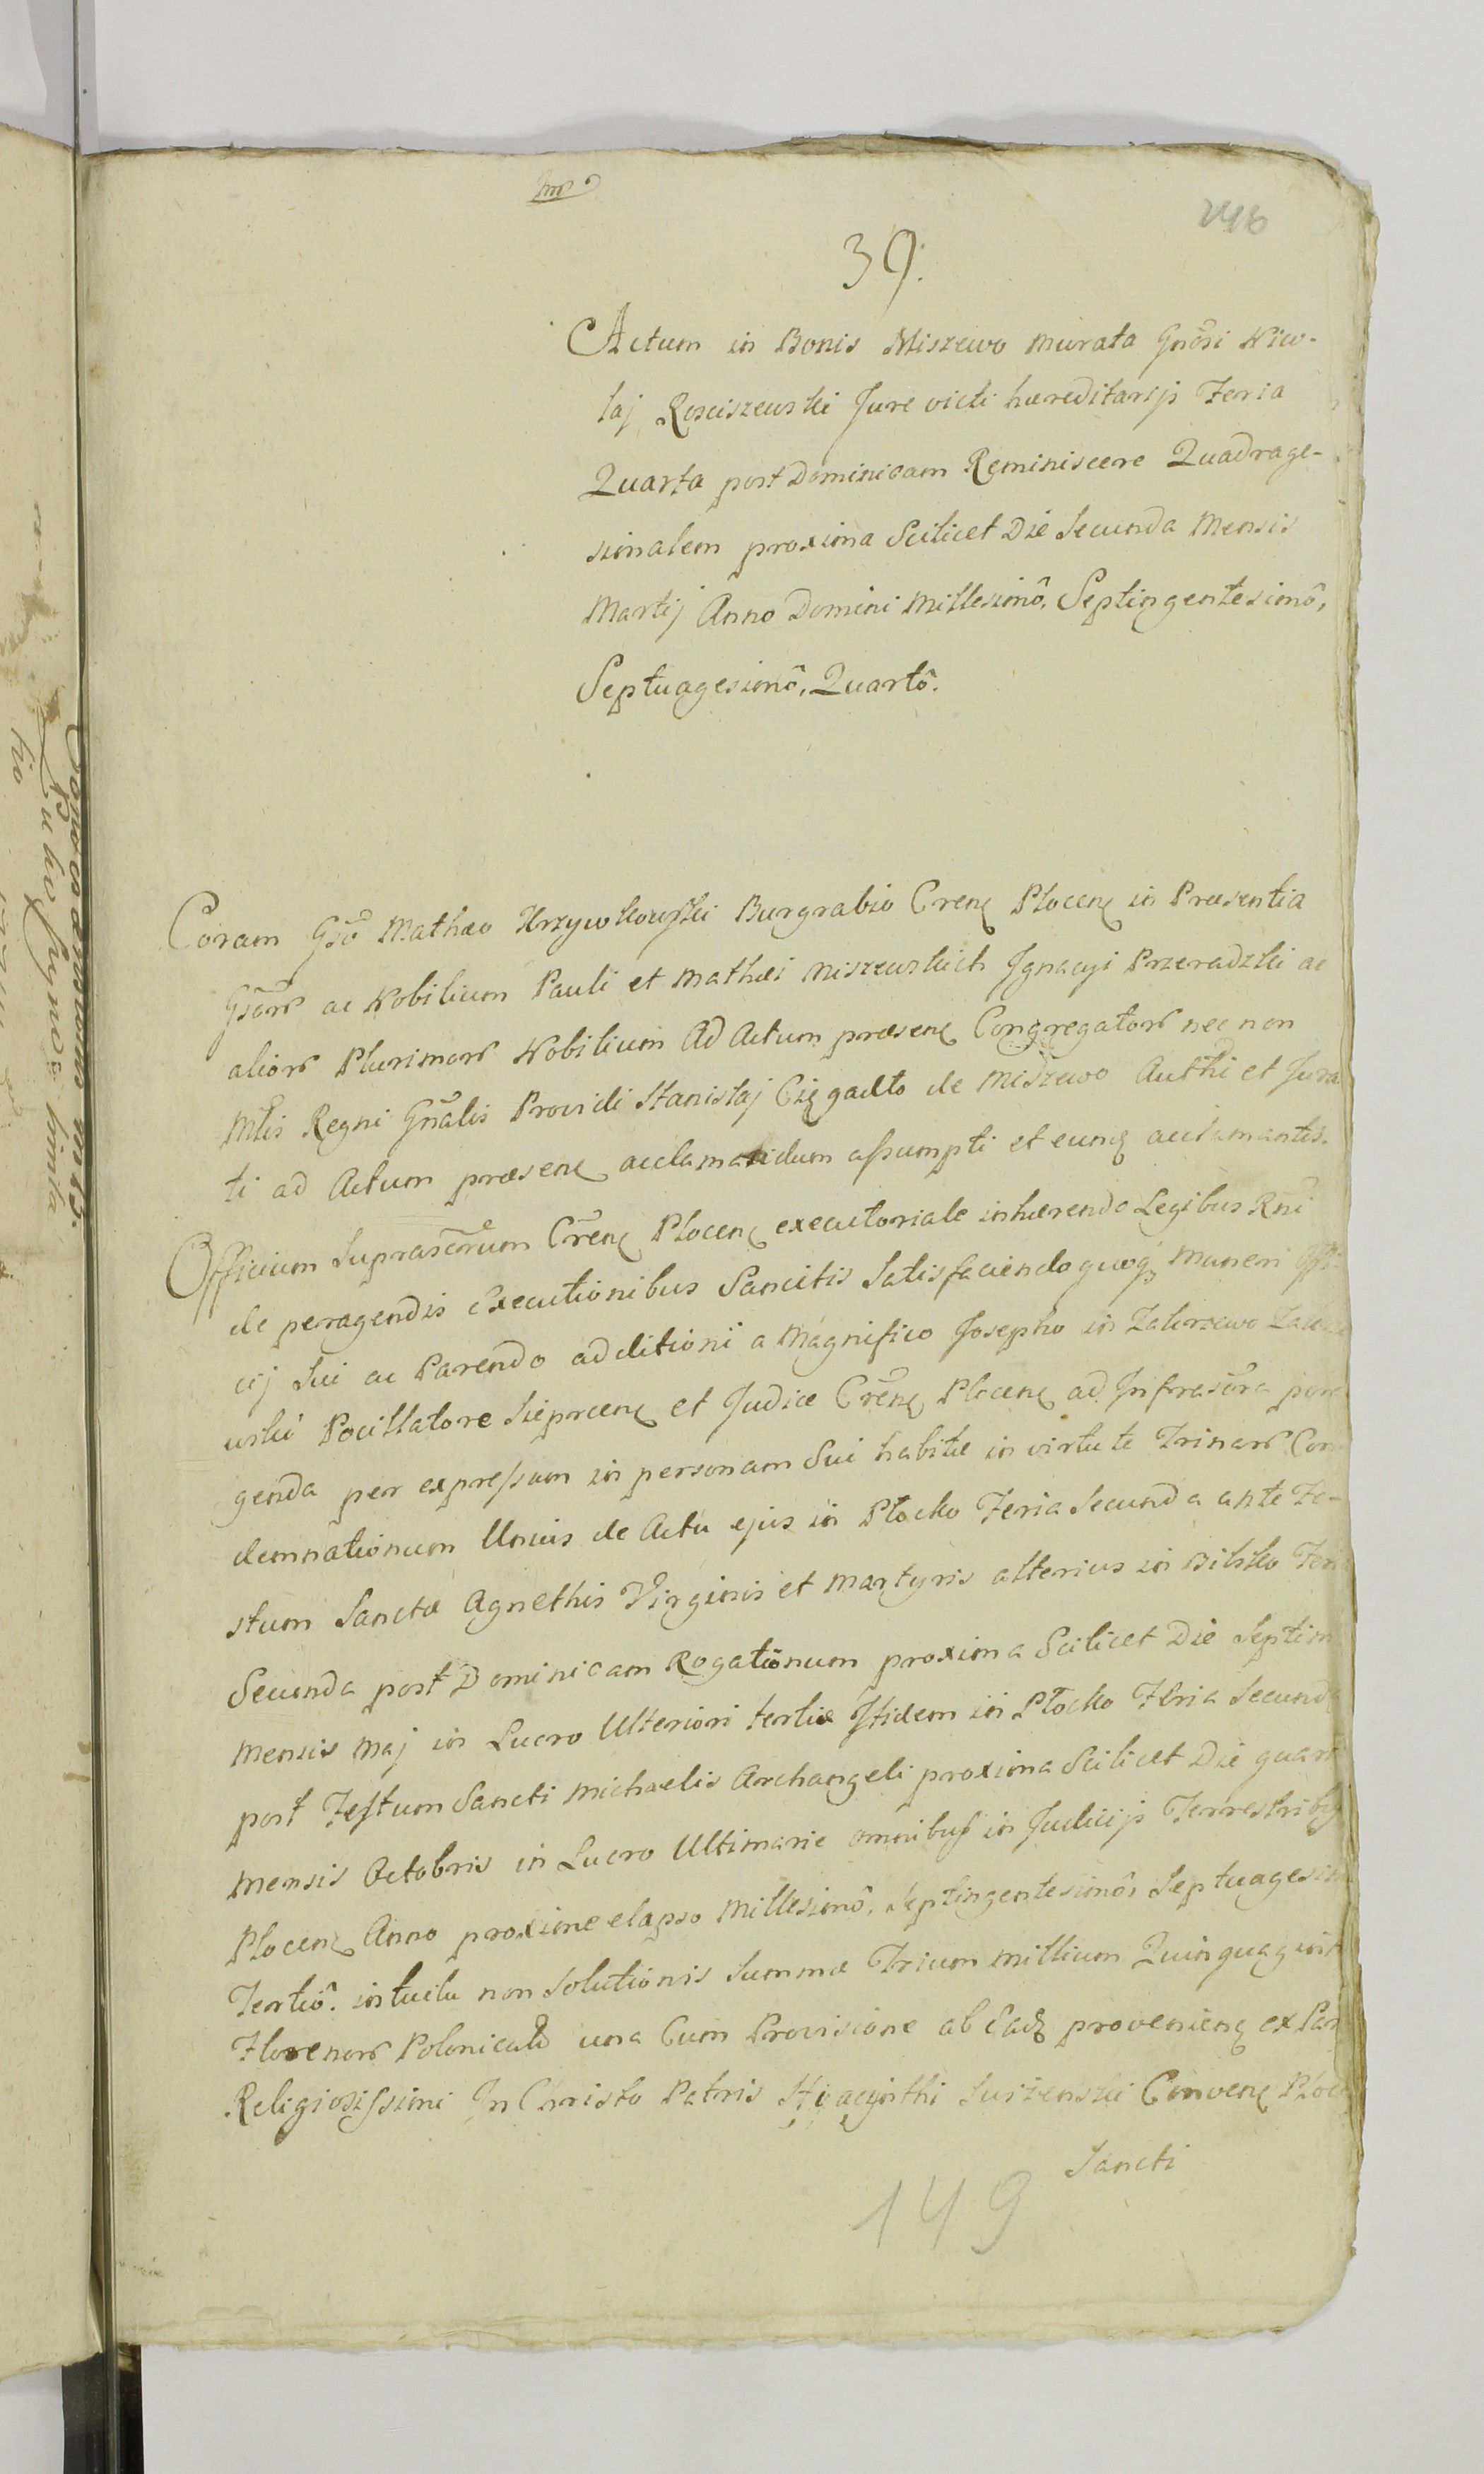 246
39.
Actum in Bonis Miszewo Murata Gnosi Nico-
laj Rosciszewski Jure victi hæreditarij Feria
Quarta post Dominicam Reminiscere Quadrage-
simalem proxima Scilicet Die Secunda Mensis
Martij Anno Domini Millesimô, Septingentesimô,
Septuagesimô, Quartô.
Coram Gsō Mathæo Krzywkowski Burgrabio Cren̄ Plocen̄ in Præsentia
Gsōr̄ ac Nobilium Pauli et Mathæi Miszewskich Ignacyi Przeradzki ac
alior̄ Plurimor̄ Nobilium Ad Actum præsen̄ Congregator̄ nec non
Mtis̄ Regni Gnālis Providi Stanislaj de Miszewo Authci et Jura
ti ad Actum præsen̄ acclamandum assumpti et eunḍ acclamantis.
Officium Suprascrūm Cren̄ Plocen̄ executoriale inhærendo Legibus Rnī
de peragendis Executionibus Sancitis Satisfaciendo quoq3 Muneri Offi-
cij Sui ac Parendo additioni a Magnifico Josepho in Zakrzewo Zakrze
wski Pocillatore Sieprcen̄ et Judice Cren̄ Plocen̄ ad Infrascra pera
genda per expressum in personam Sui habitæ in virtute Trinar̄ Con
demnationum Unius de Actu ejus in Płocko Feria Secunda ante Fe-
stum Sanctæ Agnethis Virginis et Martyris alterius in Bilsko Feri
Secunda post Dominicam Rogationum proxima Scilicet Die Septim
Mensis Maj in Lucro Ulteriori tertiæ Itidem in Płocko Feria Secunda
post Festum Sancti Michaelis Archangeli proxima Scilicet Die quart
Mensis Octobris in Lucro Ultimarie omnibus in Judicijs Terrestribg
Plocen̄ Anno proxime elapso Millesimô, Septingentesimô, Septuagesim
Tertiô. intuitu non Solutionis Summæ Trium Millium Quinquagint
Florenor̄ Polonical̄ una Cum Provisione ab Ead̄ provenien̄ ex Par
Religiosissimi In Christo Patris Hyacynthi Suizenski Conven̄ Ploc
Sancti
149